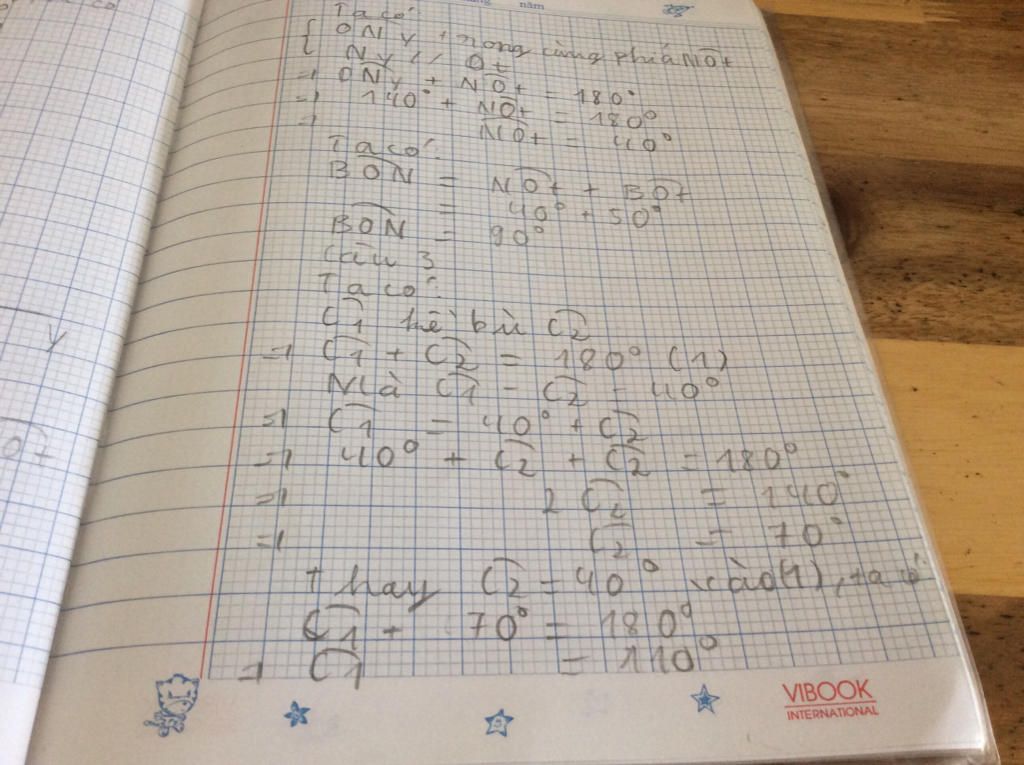 năm
Ta có:
{ ONy trong cùng phía NOt
Ny // Ot
=> ONy + NOt = 180°
=> 140° + NOt = 180°
=> NOt = 40°
Ta có:
BON = NOt + BOt
= 40° + 50°
BON = 90°
Câu 3
Ta có:
C1 kề bù C2
=> C1 + C2 = 180° (1)
Mà C1 - C2 = 40°
=> C1 = 40° + C2
=> 40° + C2 + C2 = 180°
=> 2 C2 = 140°
=> C2 = 70°
thay C2 = 40° vào (1), ta có
C1 + 70° = 180°
=> C1 = 110°
y
Ot
VIBOOK
INTERNATIONAL